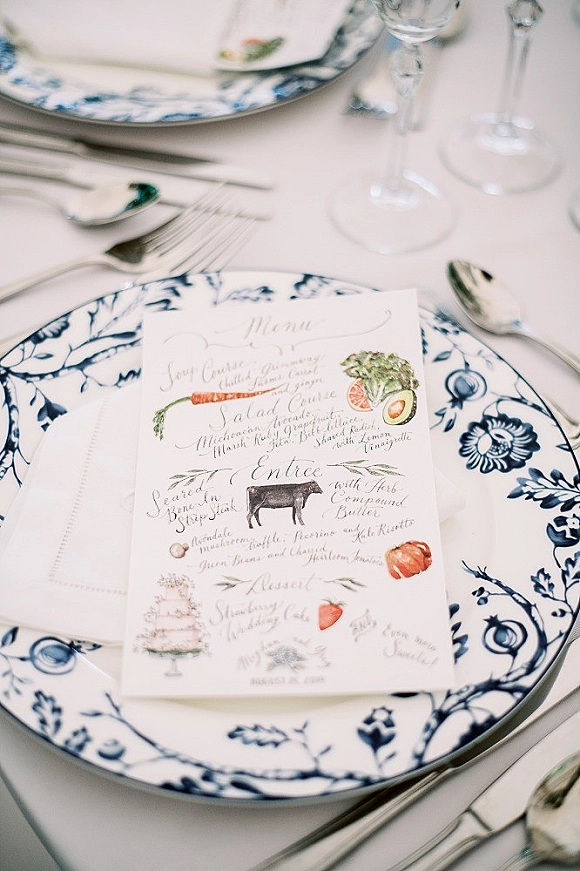 Menu
Soup Course
Chilled Greenmarket
Farms Carrot
and ginger
Salad Course
Michoacan Avocado
Marsh Ruby Grapefruit
Bibb Lettuce
Shaved Radish,
with Lemon
Vinaigrette
Entrée
Seared
Bone-In
Strip Steak
with Herb
Compound
Butter
Avondale
Mushroom Truffle - Pecorino and Kale Risotto
Green Beans and Charred Heirloom Tomato
Dessert
Strawberry
Wedding Cake
AND
Even more
Sweets!
Meghan and